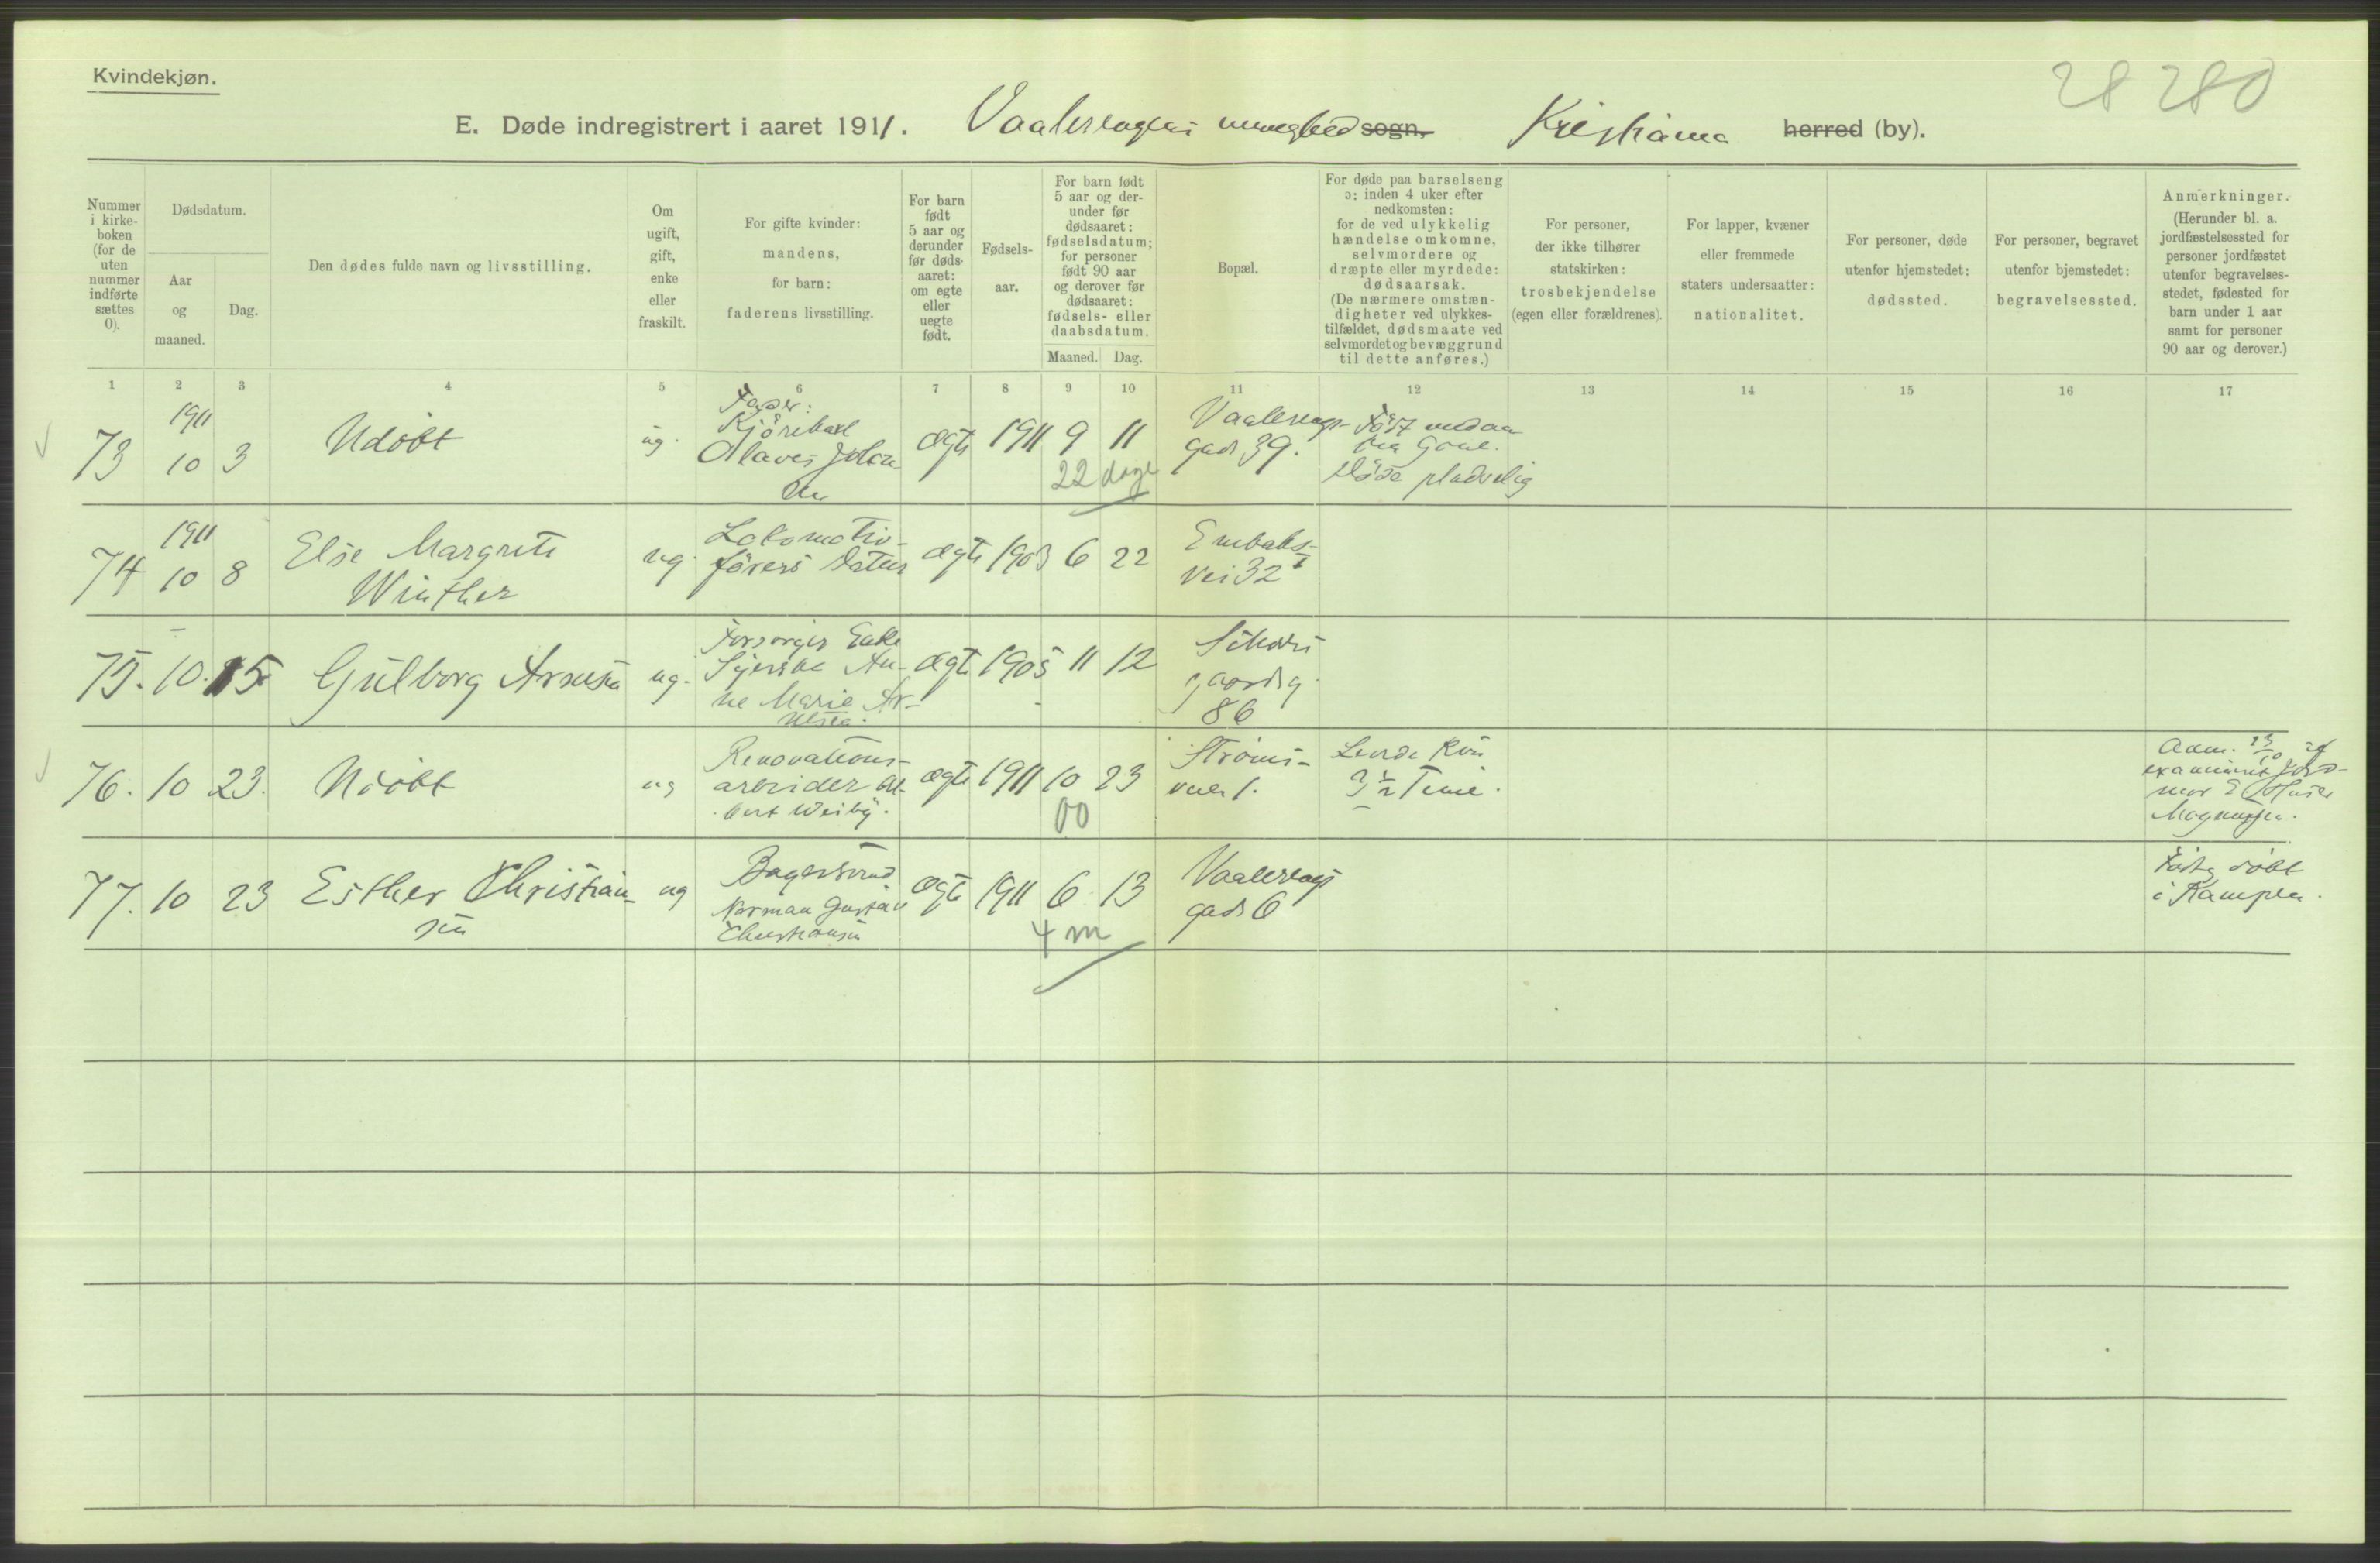 Kvindekjøn.
28 280
E. Døde indregistrert i aaret 1911. Vaalerengens menighed sogn, Kristiania herred (by).
Nummer i kirke-boken (for de uten nummer indførte sættes 0).
Dødsdatum.
Aar og maaned.
Dag.
Den dødes fulde navn og livsstilling.
Om ugift, gift, enke eller fraskilt.
For gifte kvinder: mandens, for barn: faderens livsstilling.
For barn født 5 aar og derunder før døds-aaret: om egte eller uegte født.
Fødsels-aar.
For barn født 5 aar og der-under før dødsaaret: fødselsdatum; for personer født 90 aar og derover før dødsaaret: fødsels- eller daabsdatum.
Maaned. Dag.
Bopæl.
For døde paa barselseng ɔ: inden 4 uker efter nedkomsten: for de ved ulykkelig hændelse omkomne, selvmordere og dræpte eller myrdede: dødsaarsak. (De nærmere omstæn-digheter ved ulykkes-tilfældet, dødsmaate ved selvmordet og bevæggrund til dette anføres.)
For personer, der ikke tilhører statskirken: trosbekjendelse (egen eller forældrenes).
For lapper, kvæner eller fremmede staters undersaatter: nationalitet.
For personer, døde utenfor hjemstedet: dødssted.
For personer, begravet utenfor hjemstedet: begravelsessted.
Anmerkninger. (Herunder bl. a. jordfæstelsessted for personer jordfæstet utenfor begravelses-stedet, fødested for barn under 1 aar samt for personer 90 aar og derover.)
1 2 3 4 5 6 7 8 9 10 11 12 13 14 15 16 17
73 1911 10 3 Udöbt ug. Fader: Kjörekarl Olaves Johan- sen ægte 1911 9 11 22 dage Vaalereng- gad 39. Död pludselig
74 1911 10 8 Else Margrete Winther ug. Lokomotiv- förers Datter ægte 1903 6 22 vei 32
75. 10. 15. Gulborg Arnesen ug. Forsørger Enke Syerske An- ne Marie Ar- nesen. ægte 1905 11 12 gaardsg. 86
76. 10 23. Udöbt ug Renovations- arbeider Al- bert Weiby. ægte 1911 10 23 00 Ströms- veien 1. Levede kun 3 1/2 Time. Anm. 23/10 af examineret Jord- mor Magnussen.
77. 10 23 Esther Christian- sen ug Bagersvend Norman Gustav Christiansen ægte 1911 6 13 4 m Vaalerengs gad 6 döbt i Kampen.